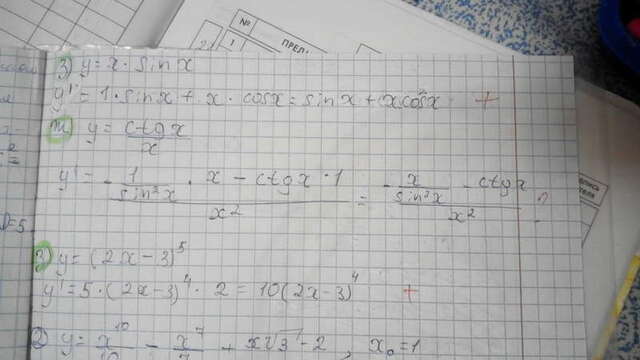 №
1
ПРЕД
3) y = x · sin x
y' = 1 · sin x + x · cos x = sin x + x cos x +
m) y = ctg x / x
y' = (-1/sin²x · x - ctg x · 1) / x² = (-x/sin²x - ctg x) / x² ?
3) y = (2x-3)⁵
y' = 5 · (2x-3)⁴ · 2 = 10(2x-3)⁴ +
2) y = x¹⁰/10 - x⁷/7 + x√3 - 2, x₀ = 1